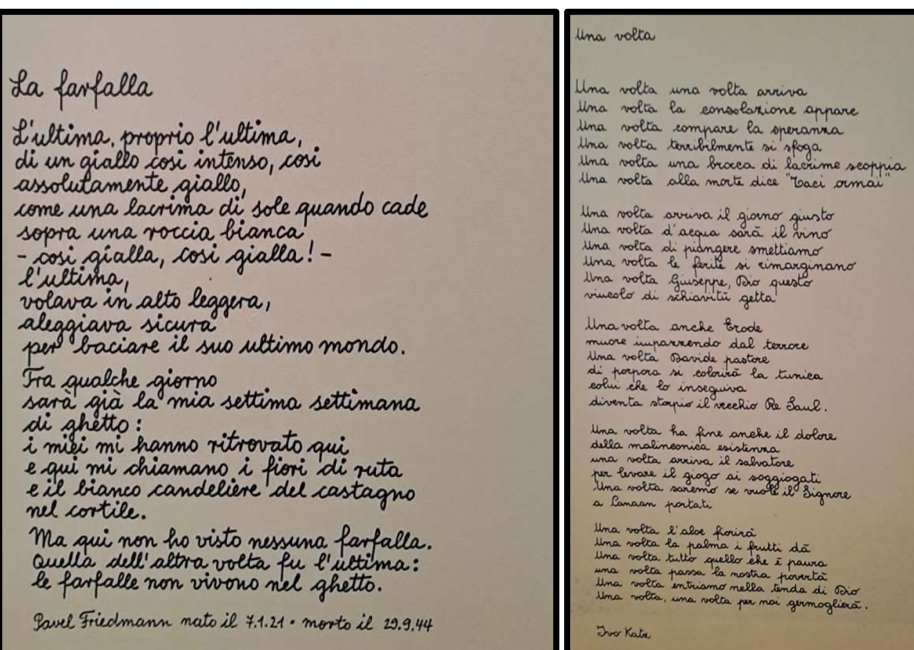 La farfalla
L'ultima, proprio l'ultima,
di un giallo così intenso, così
assolutamente giallo,
come una lacrima di sole quando cade
sopra una roccia bianca
- così gialla, così gialla! -
l'ultima,
volava in alto leggera,
aleggiava sicura
per baciare il suo ultimo mondo.
Fra qualche giorno
sarà già la mia settima settimana
di ghetto:
i miei mi hanno ritrovato qui
e qui mi chiamano i fiori di ruta
e il bianco candeliere del castagno
nel cortile.
Ma qui non ho visto nessuna farfalla.
Quella dell'altra volta fu l'ultima:
le farfalle non vivono nel ghetto.
Pavel Friedmann nato il 7.1.21 · morto il 29.9.44
Una volta
Una volta una volta arriva
Una volta la consolazione appare
Una volta compare la speranza
Una volta terribilmente si sfoga
Una volta una brocca di lacrime scoppia
Una volta alla morte dice "Taci ormai"
Una volta arriva il giorno giusto
Una volta d'acqua sarà il vino
Una volta di piangere smettiamo
Una volta le ferite si rimarginano
Una volta Giuseppe, Dio questo
vincolo di schiavitù getta
Una volta anche Erode
muore impazzendo dal terrore
Una volta Davide pastore
di porpora si colorirà la tunica
colui che lo inseguiva
diventa storpio il vecchio Re Saul.
Una volta ha fine anche il dolore
della malinconica esistenza
una volta arriva il salvatore
per levare il giogo ai soggiogati
Una volta saremo se vuole il Signore
a Canaan portati
Una volta l'aloe fiorirà
Una volta la palma i frutti dà
Una volta tutto quello che è paura
una volta passa la nostra povertà
Una volta entriamo nella tenda di Dio
Una volta, una volta per noi germoglierà.
Ivo Katz